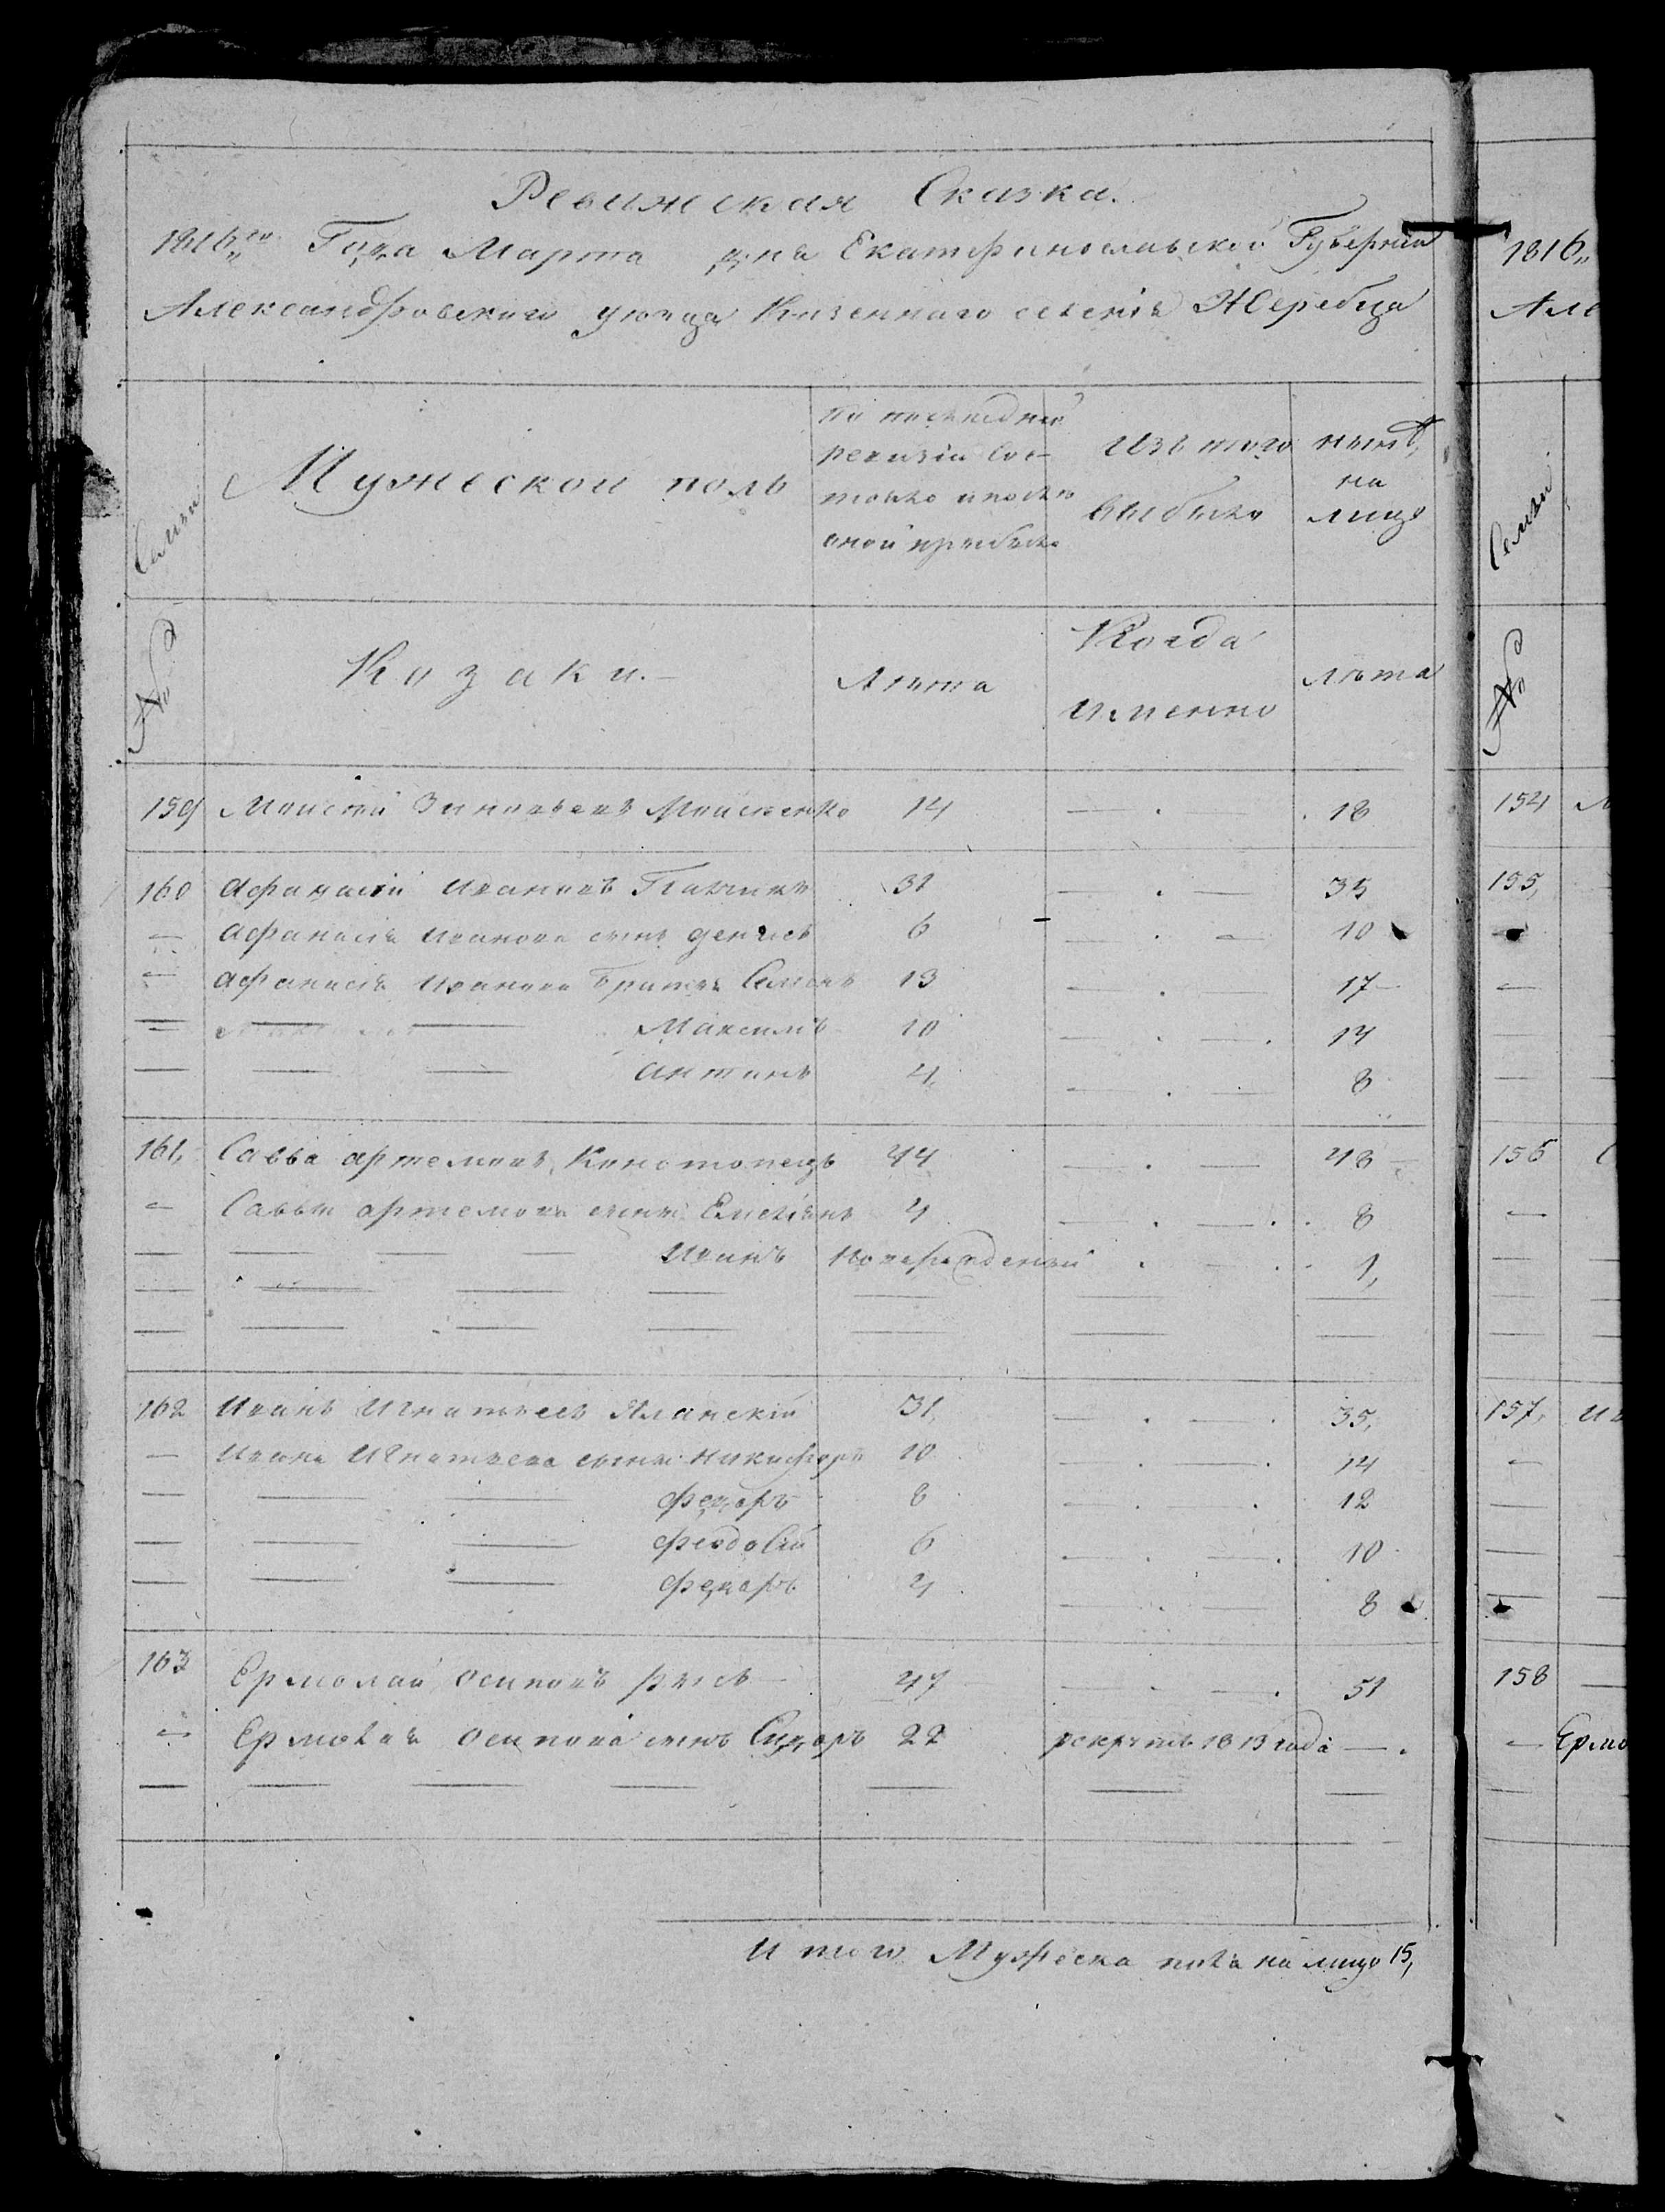 Ревижская Сказка.
1816го Года Марта дня Екатеринославской Губернии
Александровского уезда Казеннаго селенія Жеребца
Семьи
Мужеской полъ
по последней
ревизіи сос-
тояло и после
оной прибыло
Изъ того
выбыло
ныне
на
лицо
№
Козаки.
Лета
Когда
именно
лета
159 Моисей Зиновьевъ Моисеенко 14 — . — 18
160 Афанасій Ивановъ 31 — . — 35
— Афанасія Иванова сынъ Денисъ 6 — . — 10
— Афанасія Иванова братья Семенъ 13 — . — 17
— — — Максимъ 10 — . — . 14
— — — Антонъ 4 — . — 8
161, Савва Артемовъ Конотопецъ 44 — . — 48
— Саввы Артемова сынъ Емельянъ 4 — . — . 8
— — — — Иванъ Новорожденый . — . 1,
— — — — — — —
— — — — — — —
162 Иванъ Игнатьевъ Яланскій 31, — . — . 35,
— Ивана Игнатьева сынъ Никифоръ 10 — . — . 14
— — — Федоръ 8 — . — . 12
— — — Феодосій 6 — . — . 10
— — — Федоръ 4 — . — 8
163 Ермолай Осиповъ Русъ 47 — . — . 51
— Ермолая Осипова сынъ Сидоръ 22 рекрутъ 1813 года — .
— — — — — — —
Итого Мужеска пола на лицо 15,
1816,,
Але
Семьи
№
154
155,
156
157, Ив
158
— Ермо